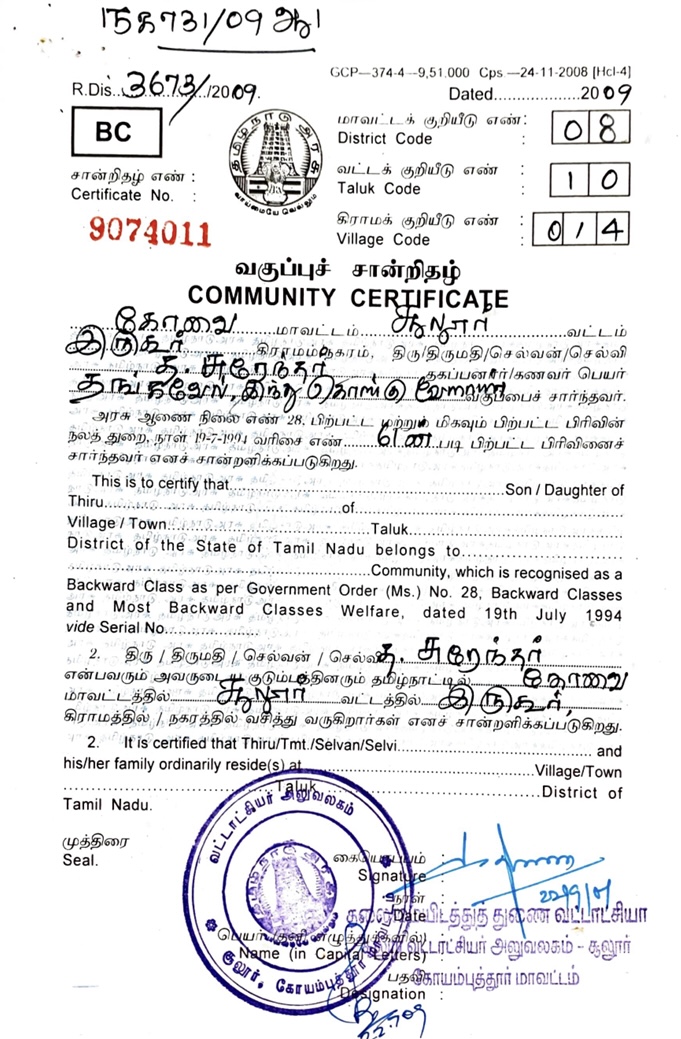 ந.க 731/09 ஆ1
GCP—374-4—9,51,000 Cps.—24-11-2008 [Hcl-4]
R.Dis. 3673/2009.
Dated..............2009
BC
மாவட்டக் குறியீடு எண் :
District Code :
08
தமிழ்நாடு அரசு
வாய்மையே வெல்லும்
வட்டக் குறியீடு எண் :
Taluk Code :
10
சான்றிதழ் எண் :
Certificate No. :
கிராமக் குறியீடு எண் :
Village Code :
014
9074011
வகுப்புச் சான்றிதழ்
COMMUNITY CERTIFICATE
கோவை மாவட்டம் சூலூர் வட்டம்
இருகூர் கிராமம்/நகரம், திரு/திருமதி/செல்வன்/செல்வி
த. சுரேந்தர் தகப்பனார்/கணவர் பெயர்
தங்கவேல், இந்து கொங்கு வேளாளர் வகுப்பைச் சார்ந்தவர்.
அரசு ஆணை நிலை எண் 28, பிற்பட்ட மற்றும் மிகவும் பிற்பட்ட பிரிவின்
நலத் துறை, நாள் 19-7-1994 வரிசை எண் படி பிற்பட்ட பிரிவினைச்
சார்ந்தவர் எனச் சான்றளிக்கப்படுகிறது.
This is to certify that..............Son / Daughter of
Thiru..............of..............
Village / Town..............Taluk..............
District of the State of Tamil Nadu belongs to..............
..............Community, which is recognised as a
Backward Class as per Government Order (Ms.) No. 28, Backward Classes
and Most Backward Classes Welfare, dated 19th July 1994
vide Serial No..............
2. திரு / திருமதி / செல்வன் / செல்வி த. சுரேந்தர்
என்பவரும் அவருடைய குடும்பத்தினரும் தமிழ்நாட்டில் கோவை
மாவட்டத்தில் சூலூர் வட்டத்தில் இருகூர்,
கிராமத்தில் / நகரத்தில் வசித்து வருகிறார்கள் எனச் சான்றளிக்கப்படுகிறது.
2. It is certified that Thiru/Tmt./Selvan/Selvi.............. and
his/her family ordinarily reside(s) at..............Village/Town
..............Taluk..............District of
Tamil Nadu.
முத்திரை
Seal.
வட்டாட்சியர் அலுவலகம்
சூலூர், கோயம்புத்தூர் மாவட்டம்
தமிழ்நாடு அரசு
கையொப்பம் :
Signature :
நாள் :
Date :
தலைமையிடத்துத் துணை வட்டாட்சியர்
வட்டாட்சியர் அலுவலகம் - சூலூர்
பெயர் (தனி எழுத்துகளில்)
Name (in Capital Letters)
கோயம்புத்தூர் மாவட்டம்
பதவி
Designation :